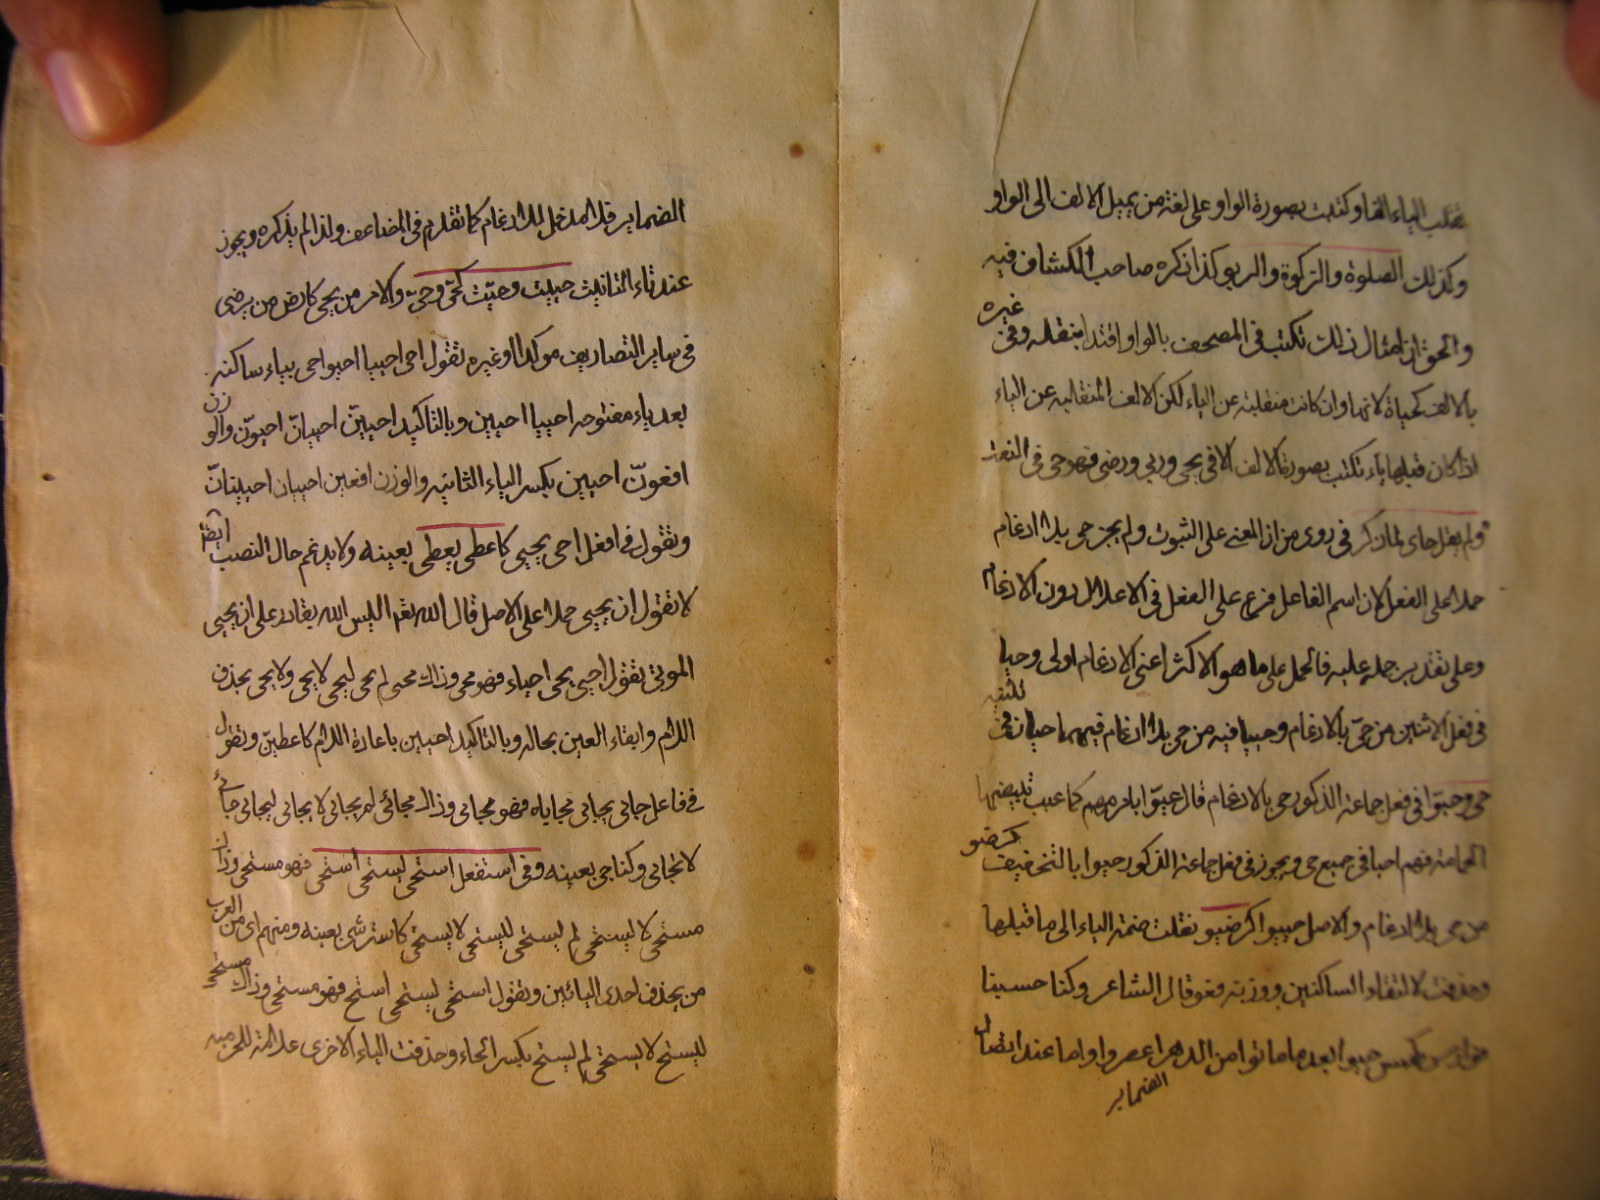 تقلب الياء الفا وكتبت بصورة الواو على لغة من يميل الالف الى الواو
وكذلك الصلوة والزكوة والربو كذا ذكره صاحب الكشاف فيه
والحق ان امثال ذلك تكتب في المصحف بالواو اقتداء بنقله وفي غيره
بالالف كحياة لانها وان كانت منقلبة عن الياء لكن الالف المنقلبة عن الياء
اذا كان قبلها ياء تكتب بصورة الالف الا في يحيى وربي ورضي فهو حي في النعت
ولم يقل حاي لما ذكر في روى من ان المعنى على الثبوت ولم يجز حي بلا ادغام
حملا على الفعل لان اسم الفاعل فرع على الفعل في الاعلال دون الادغام
وعلى تقدير حمله عليه فالحمل على ما هو الاكثر اعني الادغام اولى وحيا
في فعل الاثنين من حي بالادغام وحييا فيه من حي بلا ادغام فيهما حيان في تثنية
حي وحيوا في فعل جماعة الذكور حي بالادغام قال عيوا بامرهم كما عيت ببيضتها
الحمامة فهم احيا في جمع حي ويجوز في فعل جماعة الذكور حيوا بالتخفيف كرضو
من حي بلا ادغام والاصل حييوا كرضيو نقلت ضمة الياء الى ما قبلها
وحذفت لالتقاء الساكنين ووزنه فعو قال الشاعر وكنا حسبنا
حيوا بعد ما ماتوا من الدهر اعصروا واما عند اتصال
الضماير
الضماير فلا مدخل للادغام كما تقدم في المضاعف ولذا لم يذكره ويجوز
عند تاء التانيث حييت وحيت كحي وحي والامر من يحي كارض من يرضى
في ساير التصاريف موكدا او غيره تقول احي احييا احيوا احي بياء ساكنه
بعد ياء مفتوحه احييا احيين وبالتاكيد احيين احييان احيون والوزن
افعون احيين بكسر الياء الثانيه والوزن افعين احييان احيينان
وتقول في افعل احي يحيى كاعطى يعطى بعينه ولا يدغم حال النصب ايضا
لا تقول ان يحيى حملا على الاصل قال الله تعالى اليس الله بقادر على ان يحيى
الموتى تقول احيى يحى احياء فهو محى وذاك محيى لم يحى ليحى لا يحى ولا يحى بحذف
اللام وابقاء العين بحاله وبالتاكيد احيين باعادة اللام كاعطين وتقول
في فاعل حاي يحاي محاياه فهو محاي وذاك محائي لم يحاي لا يحاي ليحاي حائ
لا تحاي وكذا حي بعينه وفي استفعل استحى يستحى استحى فهو مستحى وذاك
مستحى لا يستحى لم يستحى ليستحى لا يستحى كاسترشى بعينه ومنهم اي من العرب
من يحذف احدى اليائين وتقول استحى يستحى استح فهو مستحى وذاك مستحى
ليستح لا يستحى لم يستح بكسر الحاء وحذفت الياء الاخرى علامة للجزميه